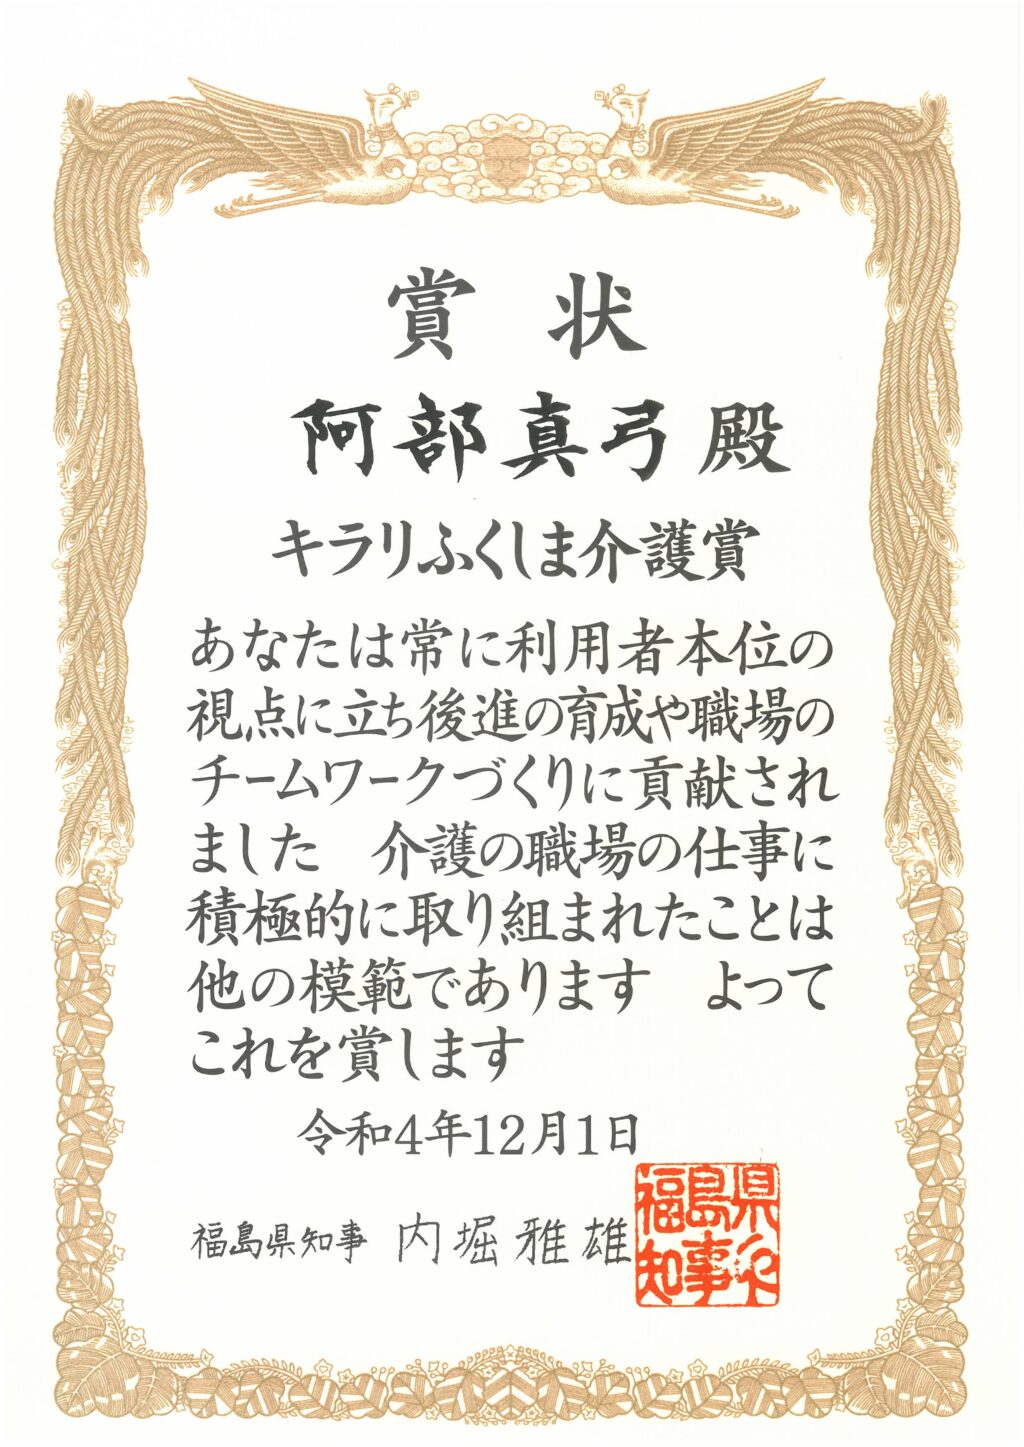 賞状
阿部真弓 殿
キラリふくしま介護賞
あなたは常に利用者本位の
視点に立ち後進の育成や職場の
チームワークづくりに貢献され
ました 介護の職場の仕事に
積極的に取り組まれたことは
他の模範であります よって
これを賞します
令和4年12月1日
福島県知事 内堀雅雄
福島県
知事